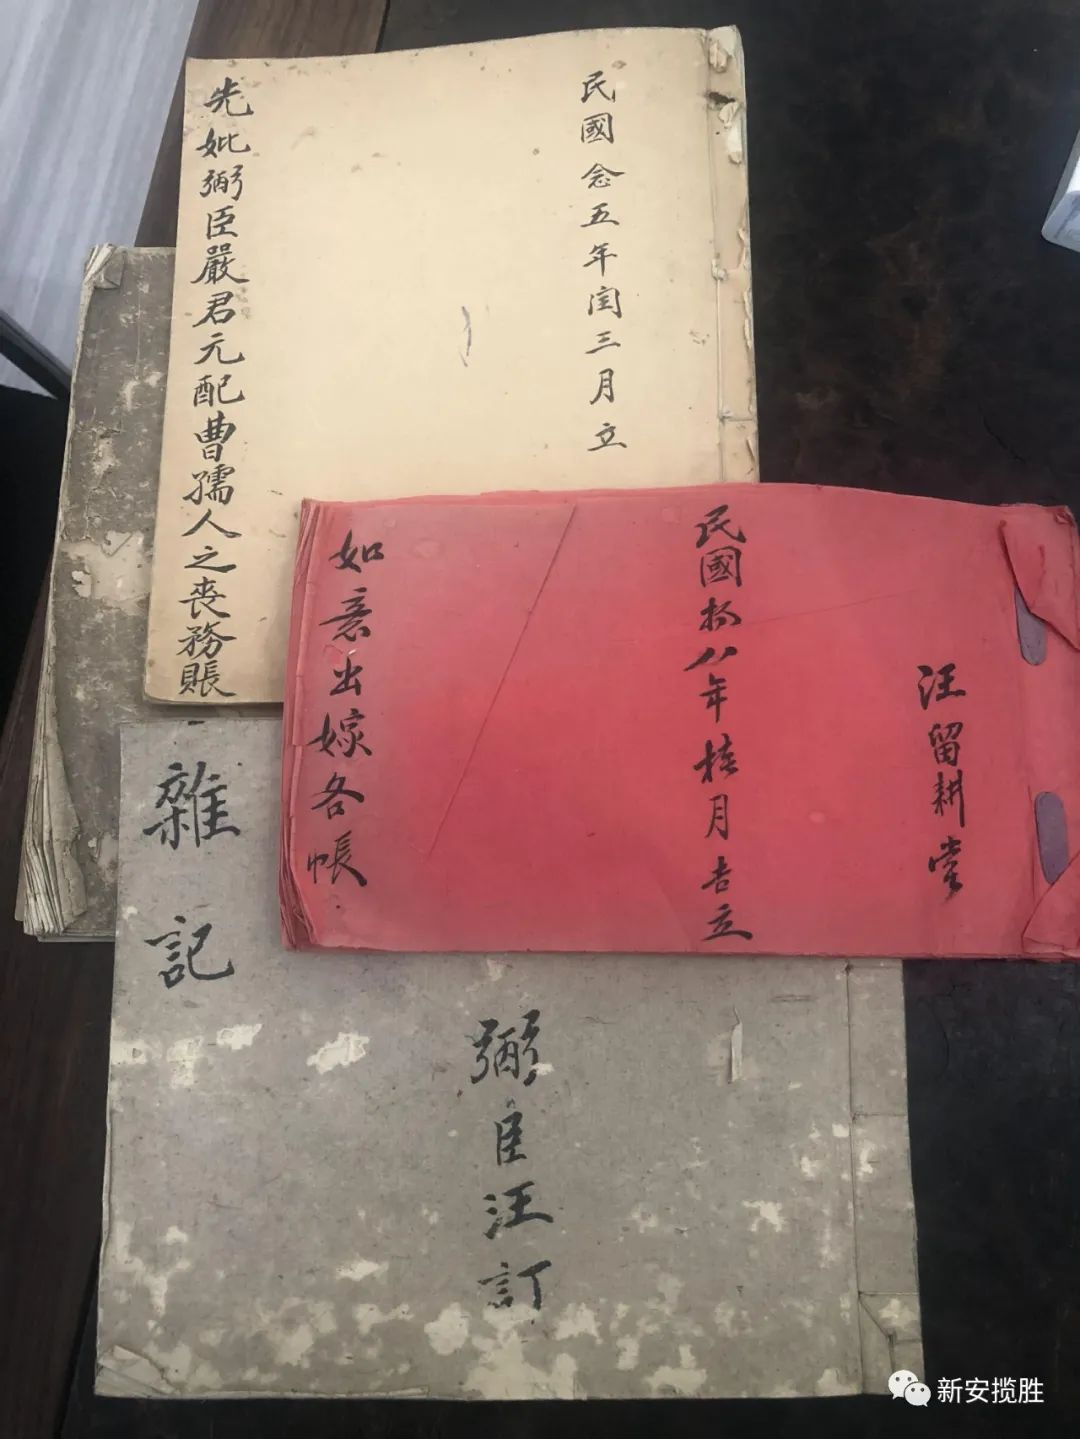 民國念五年闰三月立
先妣弼臣嚴君元配曹孺人之喪務賬
汪留耕堂
民國拾八年桂月吉立
如意出嫁各帳
雜記
弼臣汪訂
新安揽胜